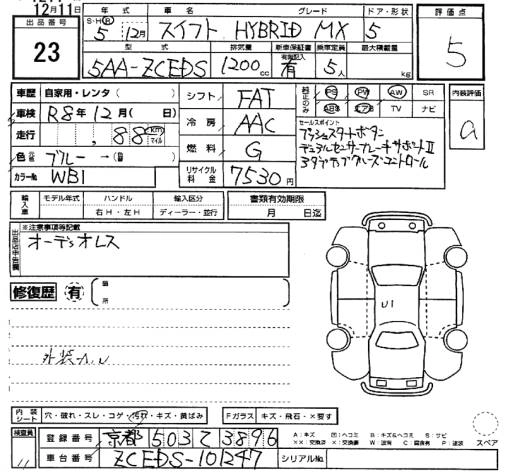 12月11日
出品番号
23
年式 車名 グレード ドア・形状
S・H・R 5年 12月 スイフト HYBRID MX 5
型式 排気量 新車保証書 乗車定員 最大積載量
5AA-ZCEDS 1200cc 有 5人 kg
評価点
5
車歴 自家用・レンタ( )
車検 R8年12月( 日)
走行 , 88 km マイル
色 ブルー→( )
カラーNo. WB1
シフト FAT
冷房 AAC
燃料 G
リサイクル料金 7530円
純正のみ PS PW AW SR
ABS エアB TV ナビ
内装評価
a
セールスポイント
プッシュスタートボタン
デュアルセンサーブレーキサポートⅡ
アダプティブクルーズコントロール
輸入車 モデル年式 ハンドル 輸入区分 書類有効期限
右H・左H ディーラー・並行 月 日迄
※注意事項等記載
出品店申告欄
オーディオレス
修復歴 有 ( 箇所
U1
内装シート 穴・破れ・スレ・コゲ・汚れ・キズ・黄ばみ Fガラス キズ・飛石・×要す
スペア
検査員
登録番号 京都 503 て 3896
車台番号 ZCEDS-101247 シリアルNo.